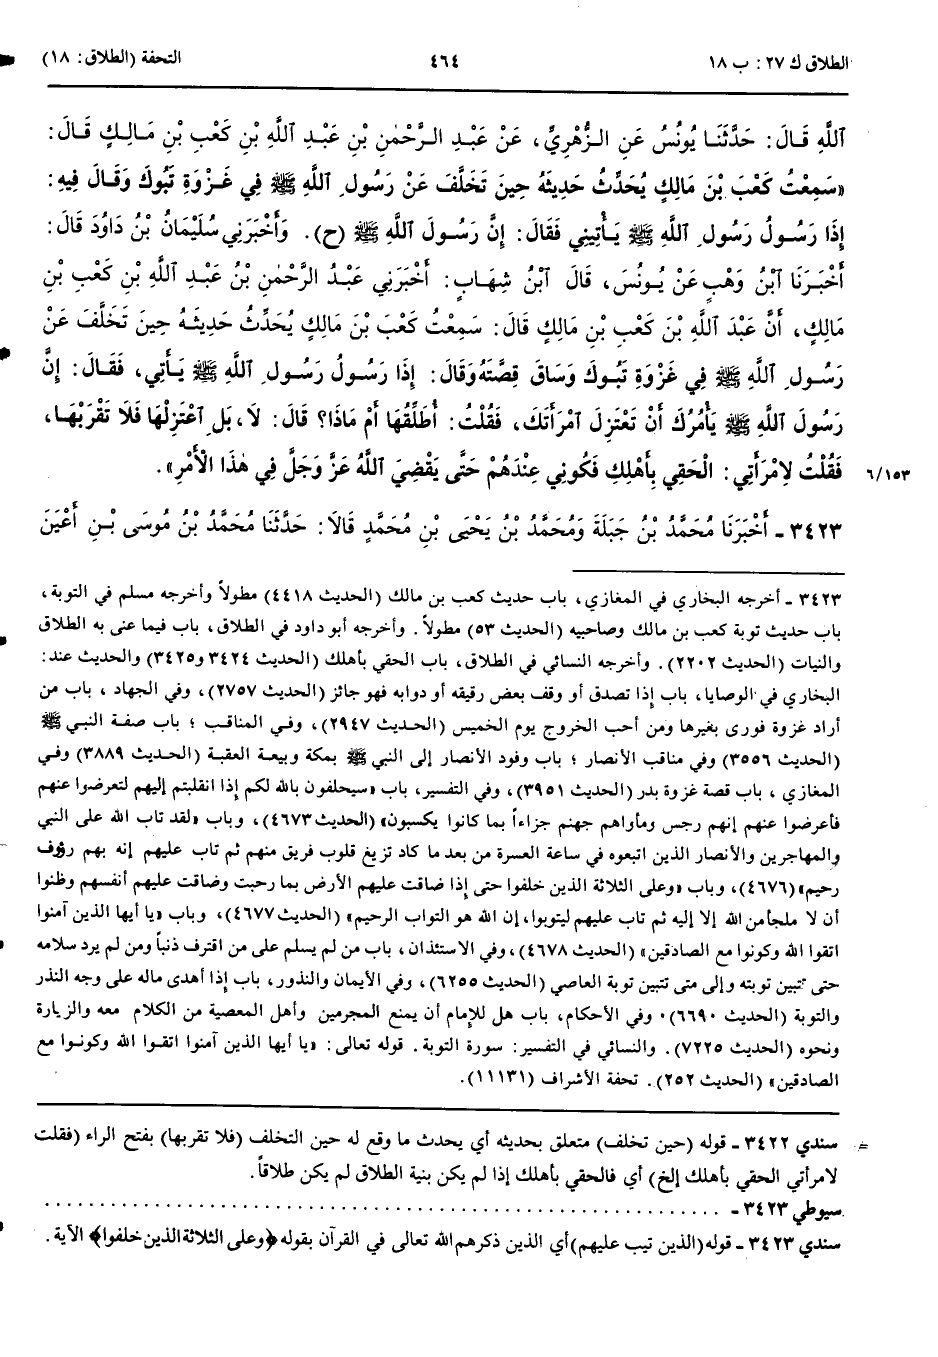 الطلاق ك ٢٧: ب ١٨ ٤٦٤ التحفة (الطلاق: ١٨)
ٱللَّهِ قَالَ: حَدَّثَنَا يُونُسُ عَنِ الزُّهْرِيِّ، عَنْ عَبْدِ الرَّحْمٰنِ بْنِ عَبْدِ ٱللَّهِ بْنِ كَعْبِ بْنِ مَالِكٍ قَالَ:
«سَمِعْتُ كَعْبَ بْنَ مَالِكٍ يُحَدِّثُ حَدِيثَهُ حِينَ تَخَلَّفَ عَنْ رَسُولِ ٱللَّهِ ﷺ فِي غَزْوَةِ تَبُوكَ وَقَالَ فِيهِ:
إِذَا رَسُولُ رَسُولِ ٱللَّهِ ﷺ يَأْتِينِي فَقَالَ: إِنَّ رَسُولَ ٱللَّهِ ﷺ (ح). وَأَخْبَرَنِي سُلَيْمَانُ بْنُ دَاوُدَ قَالَ:
أَخْبَرَنَا ٱبْنُ وَهْبٍ عَنْ يُونُسَ، قَالَ ٱبْنُ شِهَابٍ: أَخْبَرَنِي عَبْدُ الرَّحْمٰنِ بْنُ عَبْدِ ٱللَّهِ بْنِ كَعْبِ بْنِ
مَالِكٍ، أَنَّ عَبْدَ ٱللَّهِ بْنَ كَعْبِ بْنِ مَالِكٍ قَالَ: سَمِعْتُ كَعْبَ بْنَ مَالِكٍ يُحَدِّثُ حَدِيثَهُ حِينَ تَخَلَّفَ عَنْ
رَسُولِ ٱللَّهِ ﷺ فِي غَزْوَةِ تَبُوكَ وَسَاقَ قِصَّتَهُ وَقَالَ: إِذَا رَسُولُ رَسُولِ ٱللَّهِ ﷺ يَأْتِي، فَقَالَ: إِنَّ
رَسُولَ ٱللَّهِ ﷺ يَأْمُرُكَ أَنْ تَعْتَزِلَ ٱمْرَأَتَكَ، فَقُلْتُ: أُطَلِّقُهَا أَمْ مَاذَا؟ قَالَ: لَا، بَلِ ٱعْتَزِلْهَا فَلَا تَقْرَبْهَا،
فَقُلْتُ لِامْرَأَتِي: الْحَقِي بِأَهْلِكِ فَكُونِي عِنْدَهُمْ حَتَّى يَقْضِيَ ٱللَّهُ عَزَّ وَجَلَّ فِي هٰذَا الْأَمْرِ». ٦/١٥٣
٣٤٢٣ - أَخْبَرَنَا مُحَمَّدُ بْنُ جَبَلَةَ وَمُحَمَّدُ بْنُ يَحْيَى بْنِ مُحَمَّدٍ قَالَا: حَدَّثَنَا مُحَمَّدُ بْنُ مُوسَى بْنِ أَعْيَنَ
٣٤٢٣ - أخرجه البخاري في المغازي، باب حديث كعب بن مالك (الحديث ٤٤١٨) مطولاً وأخرجه مسلم في التوبة،
باب حديث توبة كعب بن مالك وصاحبيه (الحديث ٥٣) مطولاً. وأخرجه أبو داود في الطلاق، باب فيما عنى به الطلاق
والنيات (الحديث ٢٢٠٢). وأخرجه النسائي في الطلاق، باب الحقي بأهلك (الحديث ٣٤٢٤ و٣٤٢٥) والحديث عند:
البخاري في الوصايا، باب إذا تصدق أو وقف بعض رقيقه أو دوابه فهو جائز (الحديث ٢٧٥٧)، وفي الجهاد، باب من
أراد غزوة فورى بغيرها ومن أحب الخروج يوم الخميس (الحديث ٢٩٤٧)، وفي المناقب؛ باب صفة النبي ﷺ
(الحديث ٣٥٥٦) وفي مناقب الأنصار؛ باب وفود الأنصار إلى النبي ﷺ بمكة وبيعة العقبة (الحديث ٣٨٨٩) وفي
المغازي، باب قصة غزوة بدر (الحديث ٣٩٥١)، وفي التفسير، باب «سيحلفون بالله لكم إذا انقلبتم إليهم لتعرضوا عنهم
فأعرضوا عنهم إنهم رجس ومأواهم جهنم جزاءاً بما كانوا يكسبون» (الحديث ٤٦٧٣)، وباب «لقد تاب الله على النبي
والمهاجرين والأنصار الذين اتبعوه في ساعة العسرة من بعد ما كاد تزيغ قلوب فريق منهم ثم تاب عليهم إنه بهم رؤوف
رحيم» (٤٦٧٦)، وباب «وعلى الثلاثة الذين خلفوا حتى إذا ضاقت عليهم الأرض بما رحبت وضاقت عليهم أنفسهم وظنوا
أن لا ملجأ من الله إلا إليه ثم تاب عليهم ليتوبوا، إن الله هو التواب الرحيم» (الحديث ٤٦٧٧)، وباب «يا أيها الذين آمنوا
اتقوا الله وكونوا مع الصادقين» (الحديث ٤٦٧٨)، وفي الاستئذان، باب من لم يسلم على من اقترف ذنباً ومن لم يرد سلامه
حتى تتبين توبته وإلى متى تتبين توبة العاصي (الحديث ٦٢٥٥)، وفي الأيمان والنذور، باب إذا أهدى ماله على وجه النذر
والتوبة (الحديث ٦٦٩٠). وفي الأحكام، باب هل للإمام أن يمنع المجرمين وأهل المعصية من الكلام معه والزيارة
ونحوه (الحديث ٧٢٢٥). والنسائي في التفسير: سورة التوبة. قوله تعالى: «يا أيها الذين آمنوا اتقوا الله وكونوا مع
الصادقين» (الحديث ٢٥٢). تحفة الأشراف (١١١٣١).
سندي ٣٤٢٢ - قوله (حين تخلف) متعلق بحديثه أي يحدث ما وقع له حين التخلف (فلا تقربها) بفتح الراء (فقلت
لامرأتي الحقي بأهلك إلخ) أي فالحقي بأهلك إذا لم يكن بنية الطلاق لم يكن طلاقاً.
سيوطي ٣٤٢٣ - . . . . . . . . . . . . . . . . . . . .
سندي ٣٤٢٣ - قوله (الذين تيب عليهم) أي الذين ذكرهم الله تعالى في القرآن بقوله ﴿وعلى الثلاثة الذين خلفوا﴾ الآية.